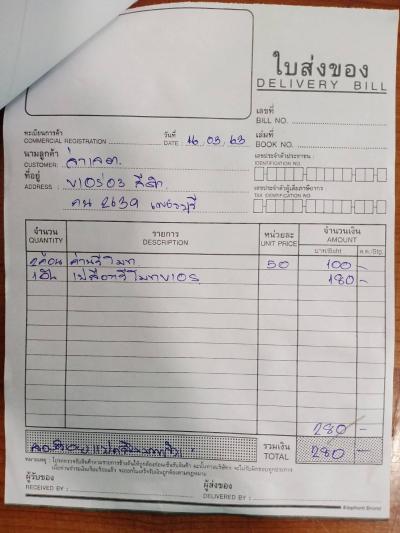 ใบส่งของ
DELIVERY BILL
เลขที่
BILL NO.
ทะเบียนการค้า วันที่ เล่มที่
COMMERCIAL REGISTRATION DATE : 16 03 63 BOOK NO.
นามลูกค้า เลขประจำตัวประชาชน :
CUSTOMER: IDENTIFICATION NO.
ที่อยู่ เลขประจำตัวผู้เสียภาษีอากร
ADDRESS : TAX IDENTIFICATION NO.
2639 เพชรบุรี
จำนวน รายการ หน่วยละ จำนวนเงิน
QUANTITY DESCRIPTION UNIT PRICE AMOUNT
บาท/Baht ส.ต./Stg.
2ก้อน ถ่านรีโมท 50 100 -
1อัน เปลือกรีโมท 180 -
280 -
รวมเงิน
TOTAL 280 -
ผู้รับของ ผู้ส่งของ
RECEIVED BY : DELIVERED BY :
Elephant Brand